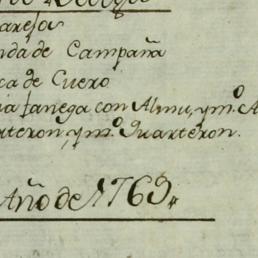 arejos
nda de Campaña
ca de Cuero
ia fanega con Almu, y m.º A
rteron, y m.º Quarteron.
Año de 1769,,